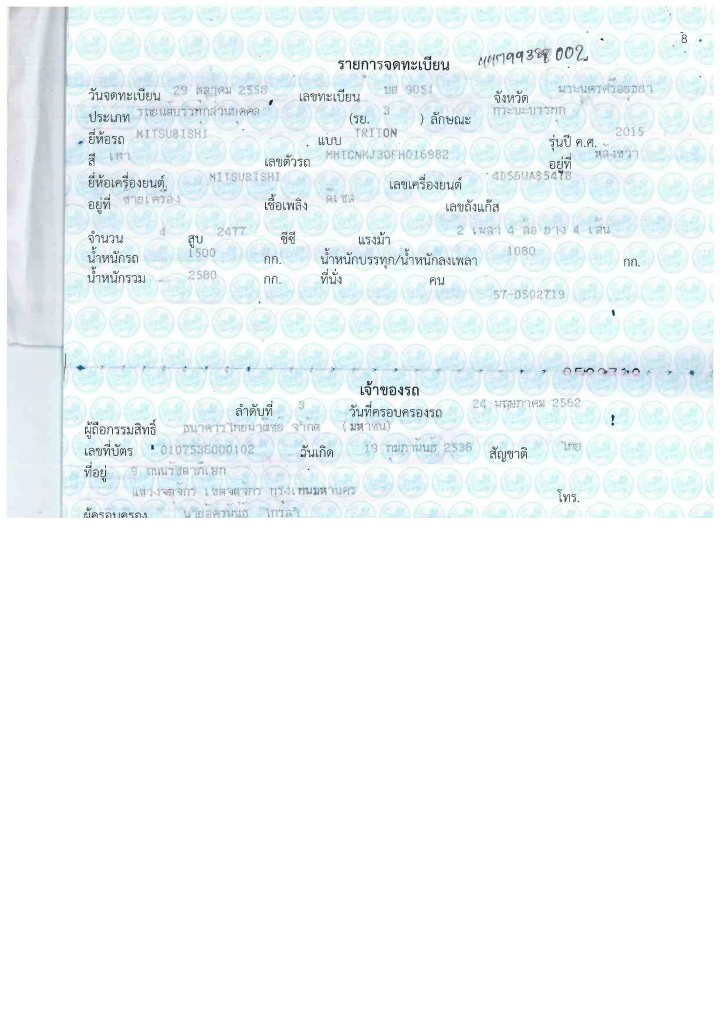 8
รายการจดทะเบียน
วันจดทะเบียน 29 ตุลาคม 2558 เลขทะเบียน บย 9051 จังหวัด พระนครศรีอยุธยา
ประเภท รถยนต์บรรทุกส่วนบุคคล (รย. 3 ) ลักษณะ กระบะบรรทุก
ยี่ห้อรถ MITSUBISHI แบบ TRITON รุ่นปี ค.ศ. 2015
สี เทา เลขตัวรถ MMTCNKJ30FH016982 อยู่ที่ หลังขวา
ยี่ห้อเครื่องยนต์ MITSUBISHI เลขเครื่องยนต์ 4D56UAB5478
อยู่ที่ ซ้ายเครื่อง เชื้อเพลิง ดีเซล เลขถังแก๊ส
จำนวน 4 สูบ 2477 ซีซี แรงม้า 2 เพลา 4 ล้อ ยาง 4 เส้น
น้ำหนักรถ 1500 กก. น้ำหนักบรรทุก/น้ำหนักลงเพลา 1080 กก.
น้ำหนักรวม 2580 กก. ที่นั่ง คน
57-0502719
เจ้าของรถ
ลำดับที่ 3 วันที่ครอบครองรถ 24 พฤษภาคม 2562
ผู้ถือกรรมสิทธิ์ ธนาคารไทยพาณิชย์ จำกัด (มหาชน)
เลขที่บัตร 0107536000102 วันเกิด 19 กุมภาพันธ์ 2536 สัญชาติ ไทย
ที่อยู่ 9 ถนนรัชดาภิเษก
แขวงจตุจักร เขตจตุจักร กรุงเทพมหานคร โทร.
ผู้ครอบครอง